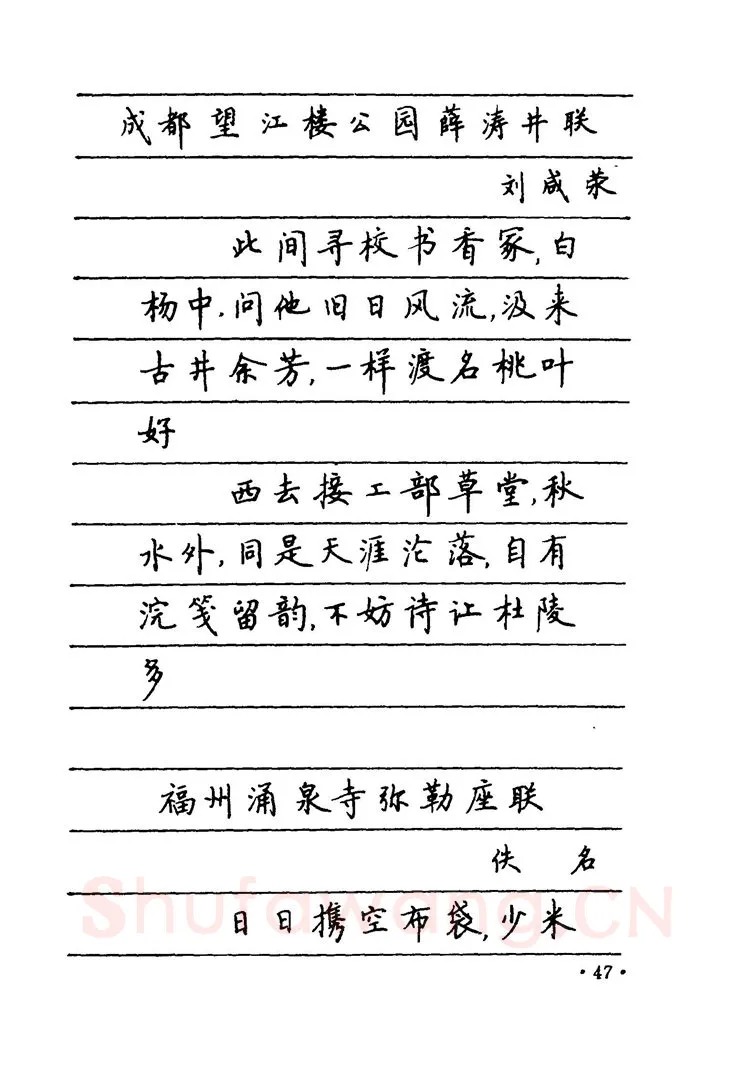 成都望江楼公园薛涛井联
刘咸荥
此间寻校书香冢,白
杨中.问他旧日风流,汲来
古井余芳,一样渡名桃叶
好
西去接工部草堂,秋
水外,同是天涯沦落,自有
浣笺留韵,不妨诗让杜陵
多
福州涌泉寺弥勒座联
佚名
日日携空布袋,少米
Shufawang.CN
·47·